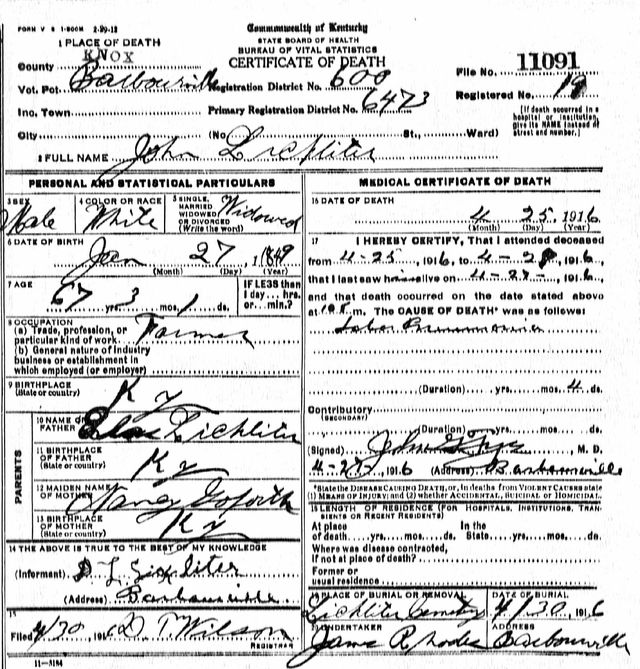 FORM V S 1-500M 2-29-12
Commonwealth of Kentucky
STATE BOARD OF HEALTH
BUREAU OF VITAL STATISTICS
CERTIFICATE OF DEATH
1 PLACE OF DEATH
County KNOX
Vot. Pct. Barbourville Registration District No. 600
Inc. Town Primary Registration District No. 6473
City (No. St., Ward)
File No. 11091
Registered No. 19
[If death occurred in a
hospital or institution,
give its NAME instead of
street and number.]
2 FULL NAME John Lichliter
PERSONAL AND STATISTICAL PARTICULARS
3 SEX Male
4 COLOR OR RACE White
5 SINGLE,
MARRIED
WIDOWED
OR DIVORCED
(Write the word) Widowed
6 DATE OF BIRTH
Jan 27, 1849
(Month) (Day) (Year)
7 AGE
67 yrs. 3 mos. 1 ds.
IF LESS than
1 day... hrs.
or... min.?
8 OCCUPATION
(a) Trade, profession, or
particular kind of work Farmer
(b) General nature of industry
business or establishment in
which employed (or employer)
9 BIRTHPLACE
(State or country) Ky
PARENTS
10 NAME OF
FATHER Lichliter
11 BIRTHPLACE
OF FATHER
(State or country) Ky
12 MAIDEN NAME
OF MOTHER Nancy Goforth
13 BIRTHPLACE
OF MOTHER
(State or country) Ky
14 THE ABOVE IS TRUE TO THE BEST OF MY KNOWLEDGE
(Informant) D L Lichliter
(Address) Barbourville
15
Filed 4/30, 1916 D T. Wilson
REGISTRAR
11-3184
MEDICAL CERTIFICATE OF DEATH
16 DATE OF DEATH
4 25, 1916
(Month) (Day) (Year)
17 I HEREBY CERTIFY, That I attended deceased
from 4-25, 1916, to 4-2, 1916,
that I last saw him alive on 4-27-, 1916,
and that death occurred on the date stated above
at m. The CAUSE OF DEATH* was as follows:
Lobar Pneumonia
(Duration) yrs. mos. 4 ds.
Contributory
(SECONDARY)
(Duration) yrs. mos. ds.
(Signed) John, M. D.
4-27, 1916 (Address) Barbourville
*State the DISEASE CAUSING DEATH, or, in deaths from VIOLENT CAUSES state
(1) MEANS OF INJURY; and (2) whether ACCIDENTAL, SUICIDAL or HOMICIDAL.
18 LENGTH OF RESIDENCE (FOR HOSPITALS, INSTITUTIONS, TRAN-
SIENTS OR RECENT RESIDENTS)
At place In the
of death yrs. mos. ds. State yrs. mos. ds.
Where was disease contracted,
if not at place of death?
Former or
usual residence
19 PLACE OF BURIAL OR REMOVAL DATE OF BURIAL
Lichliter Cemetery 4/30, 1916
20 UNDERTAKER ADDRESS
James R Rhodes Barbourville